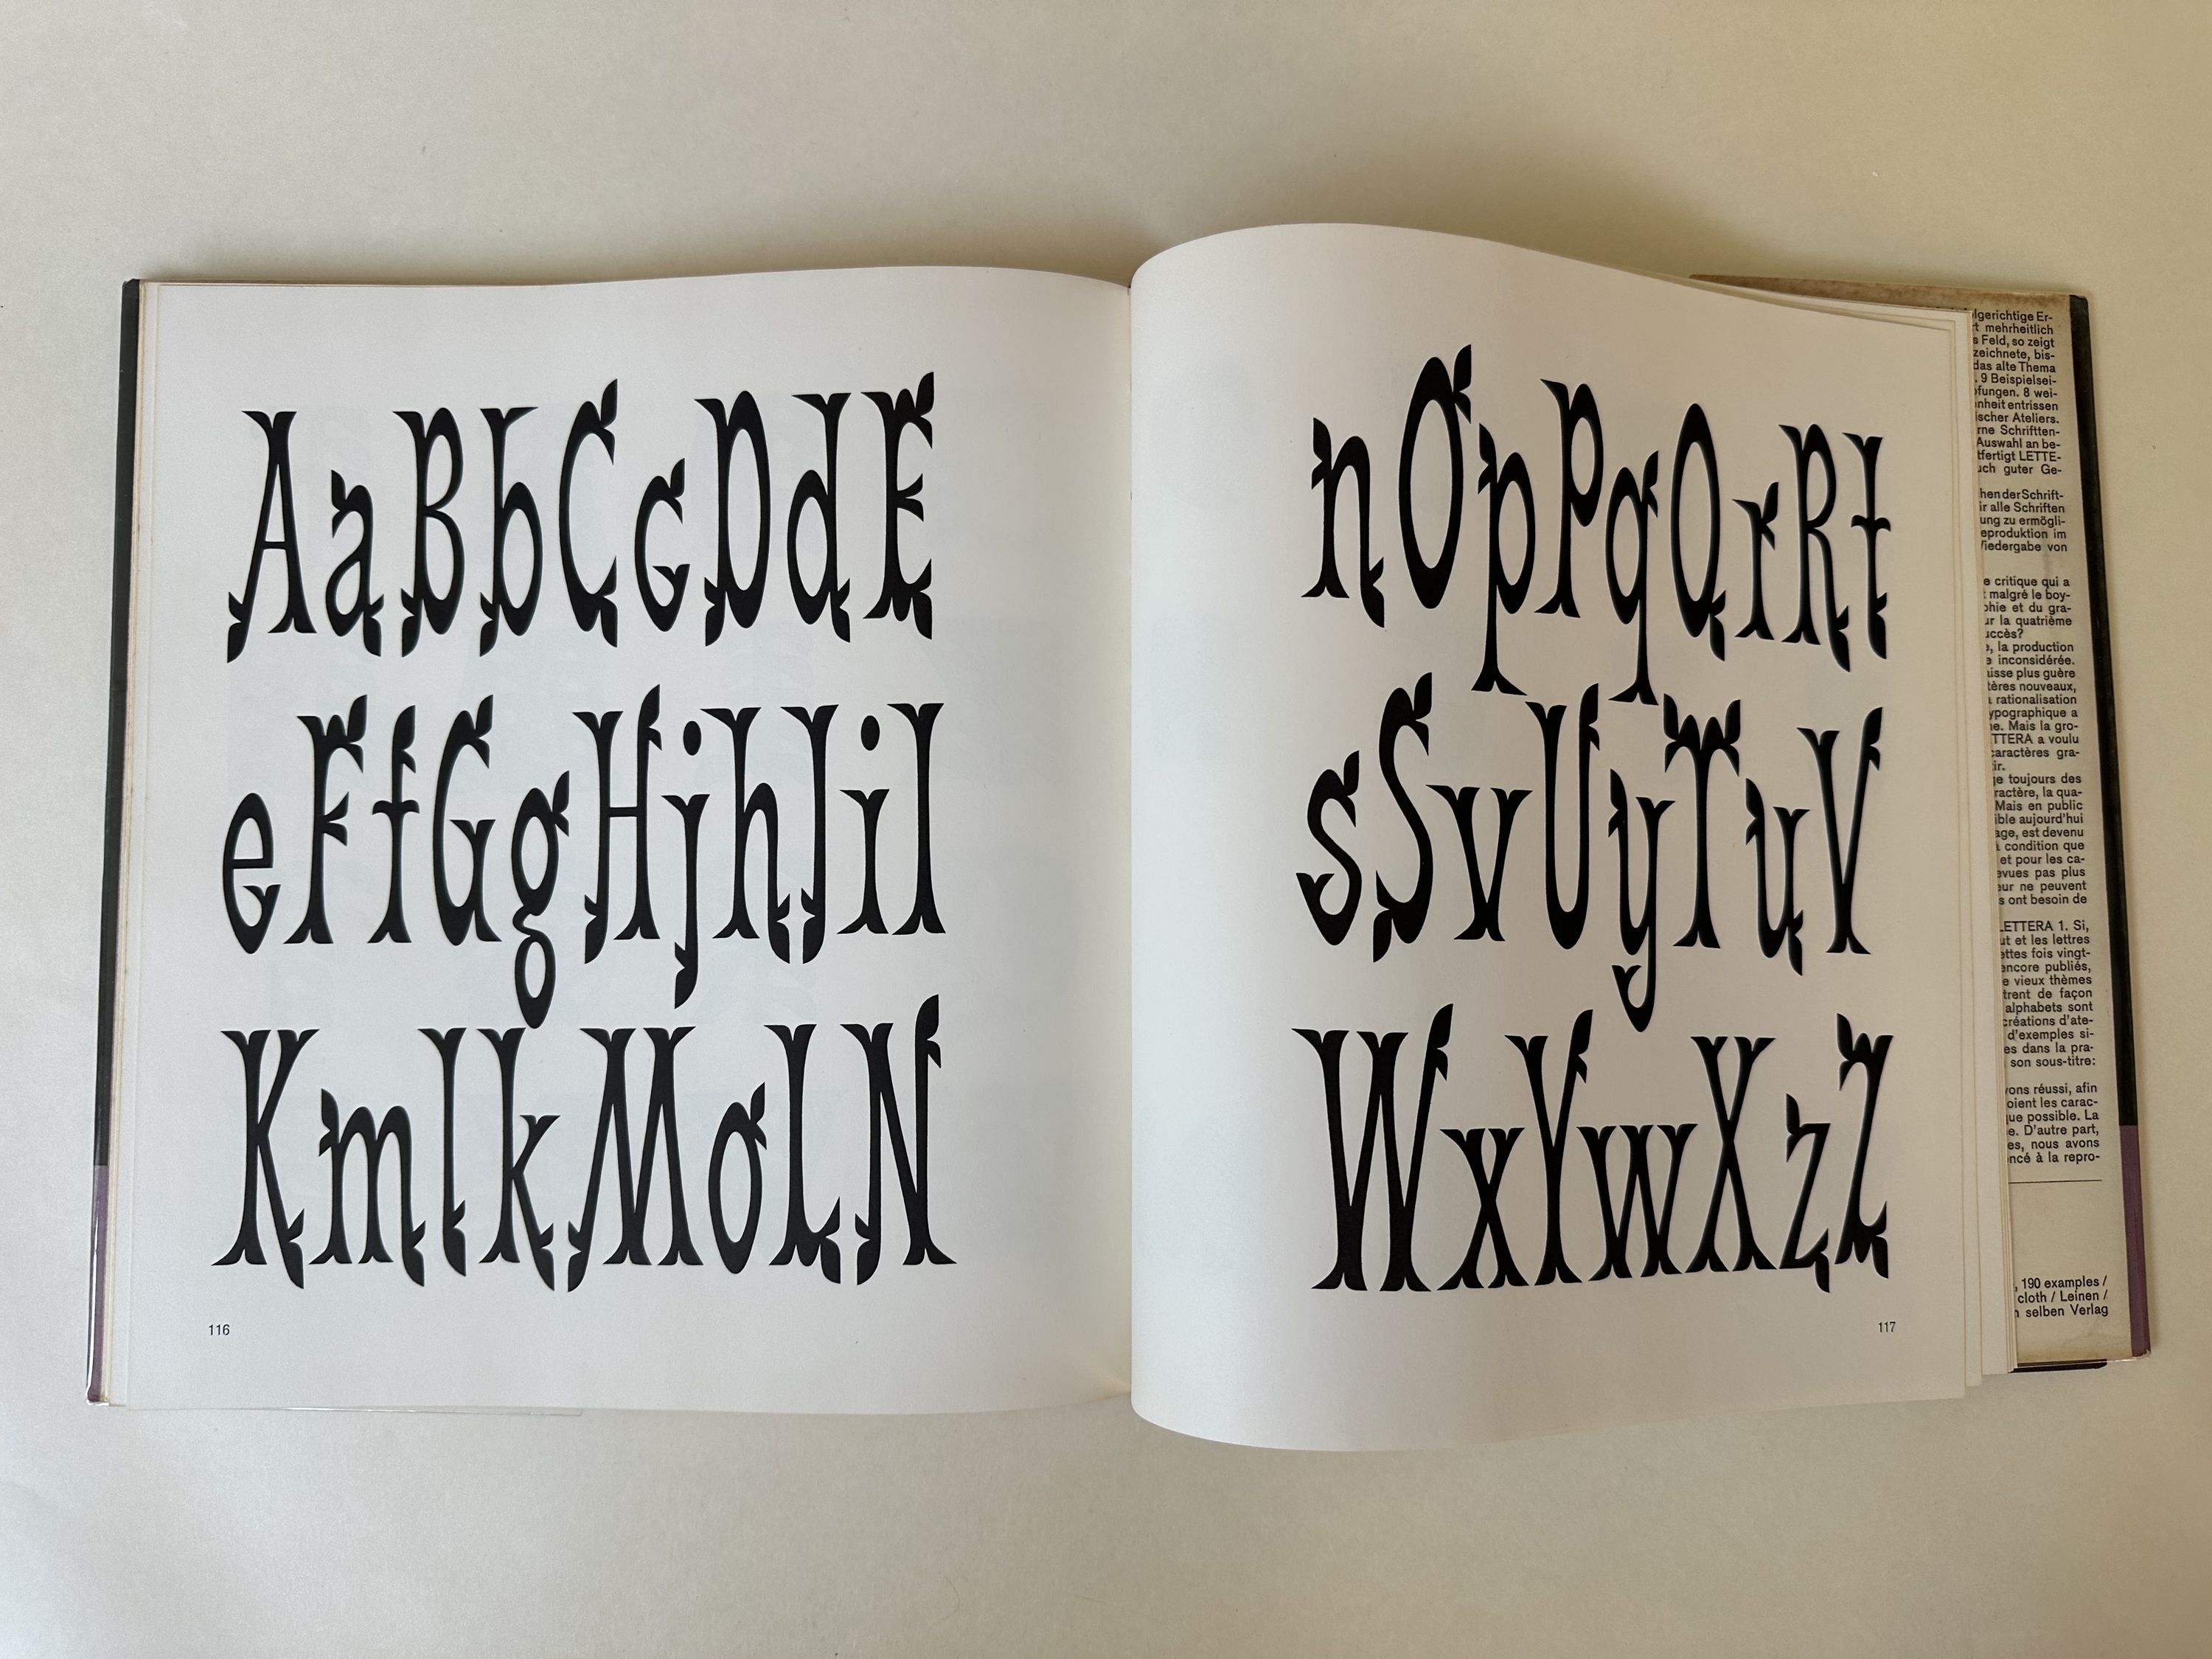 AaBbCcDdE
eFfGgHjhJiI
KmlkMoLN
116
nOpPqQrRt
sSvUyTuV
WxYwXzZ
117
lgerichtige Er-
mehrheitlich
Feld, so zeigt
zeichnete, bis-
das alte Thema
9 Beispielsei-
pfungen. 8 wei-
nheit entrissen
ischer Ateliers.
rne Schriften-
Auswahl an be-
tfertigt LETTE-
uch guter Ge-
hen der Schrift-
ir alle Schriften
ung zu ermögli-
eproduktion im
iedergabe von
critique qui a
malgré le boy-
phie et du gra-
ur la quatrième
uccès?
la production
inconsidérée.
aisse plus guère
tères nouveaux,
rationalisation
ypographique a
Mais la gro-
TTERA a voulu
caractères gra-
ir.
toujours des
ractère, la qua-
Mais en public
ible aujourd'hui
age, est devenu
condition que
et pour les ca-
evues pas plus
eur ne peuvent
s ont besoin de
LETTERA 1. Si,
ut et les lettres
ettes fois vingt-
encore publiés,
vieux thèmes
trent de façon
alphabets sont
créations d'ate-
d'exemples si-
es dans la pra-
son sous-titre:
vons réussi, afin
oient les carac-
que possible. La
D'autre part,
es, nous avons
ncé à la repro-
190 examples /
cloth / Leinen /
selben Verlag